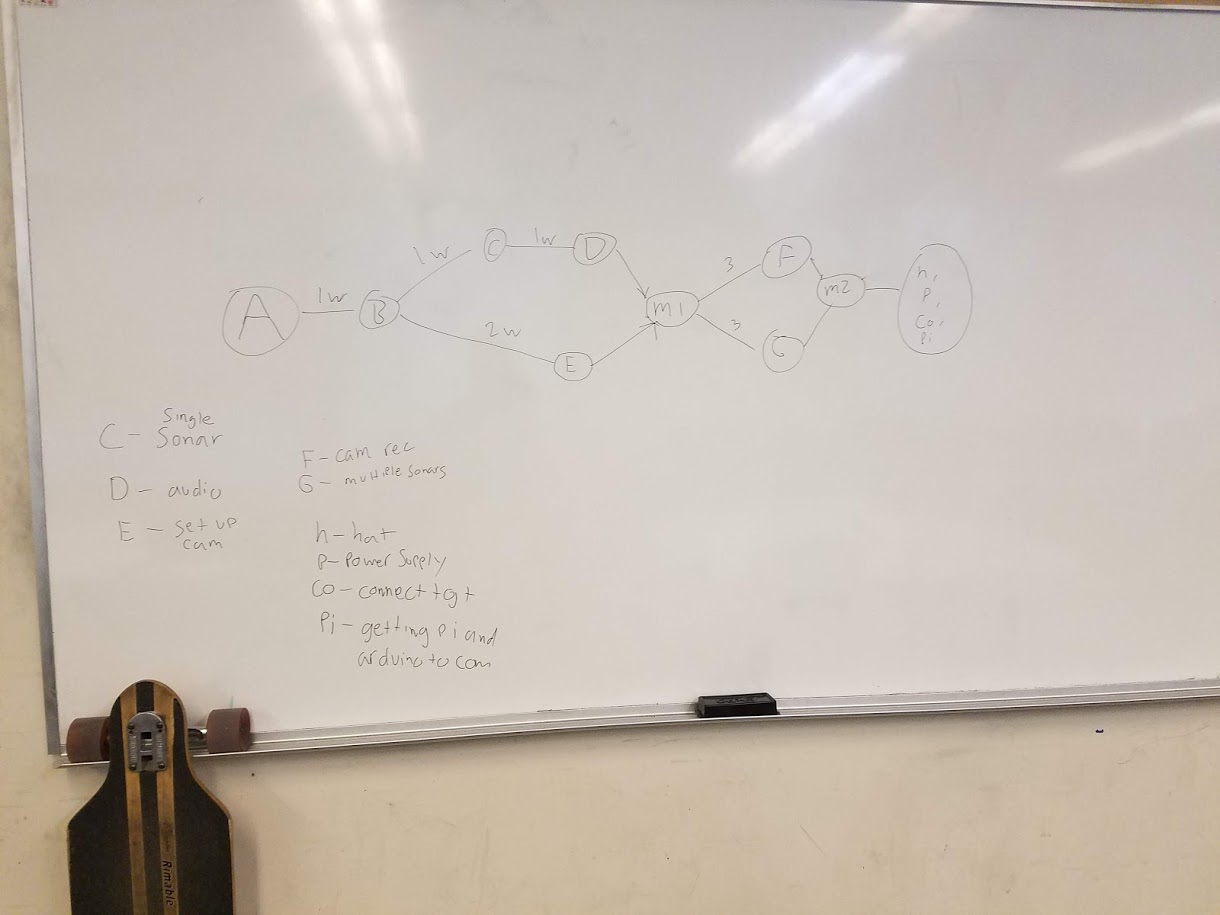 1w
1w
1w
C
D
A
B
2w
E
m1
3
3
F
G
m2
h,
P,
Co,
Pi
C - Single Sonar
D - audio
E - set up
cam
F - cam rec
G - multiple sonars
h - hat
P - Power Supply
Co - connect tgt
Pi - getting pi and
arduino to com
Rimable